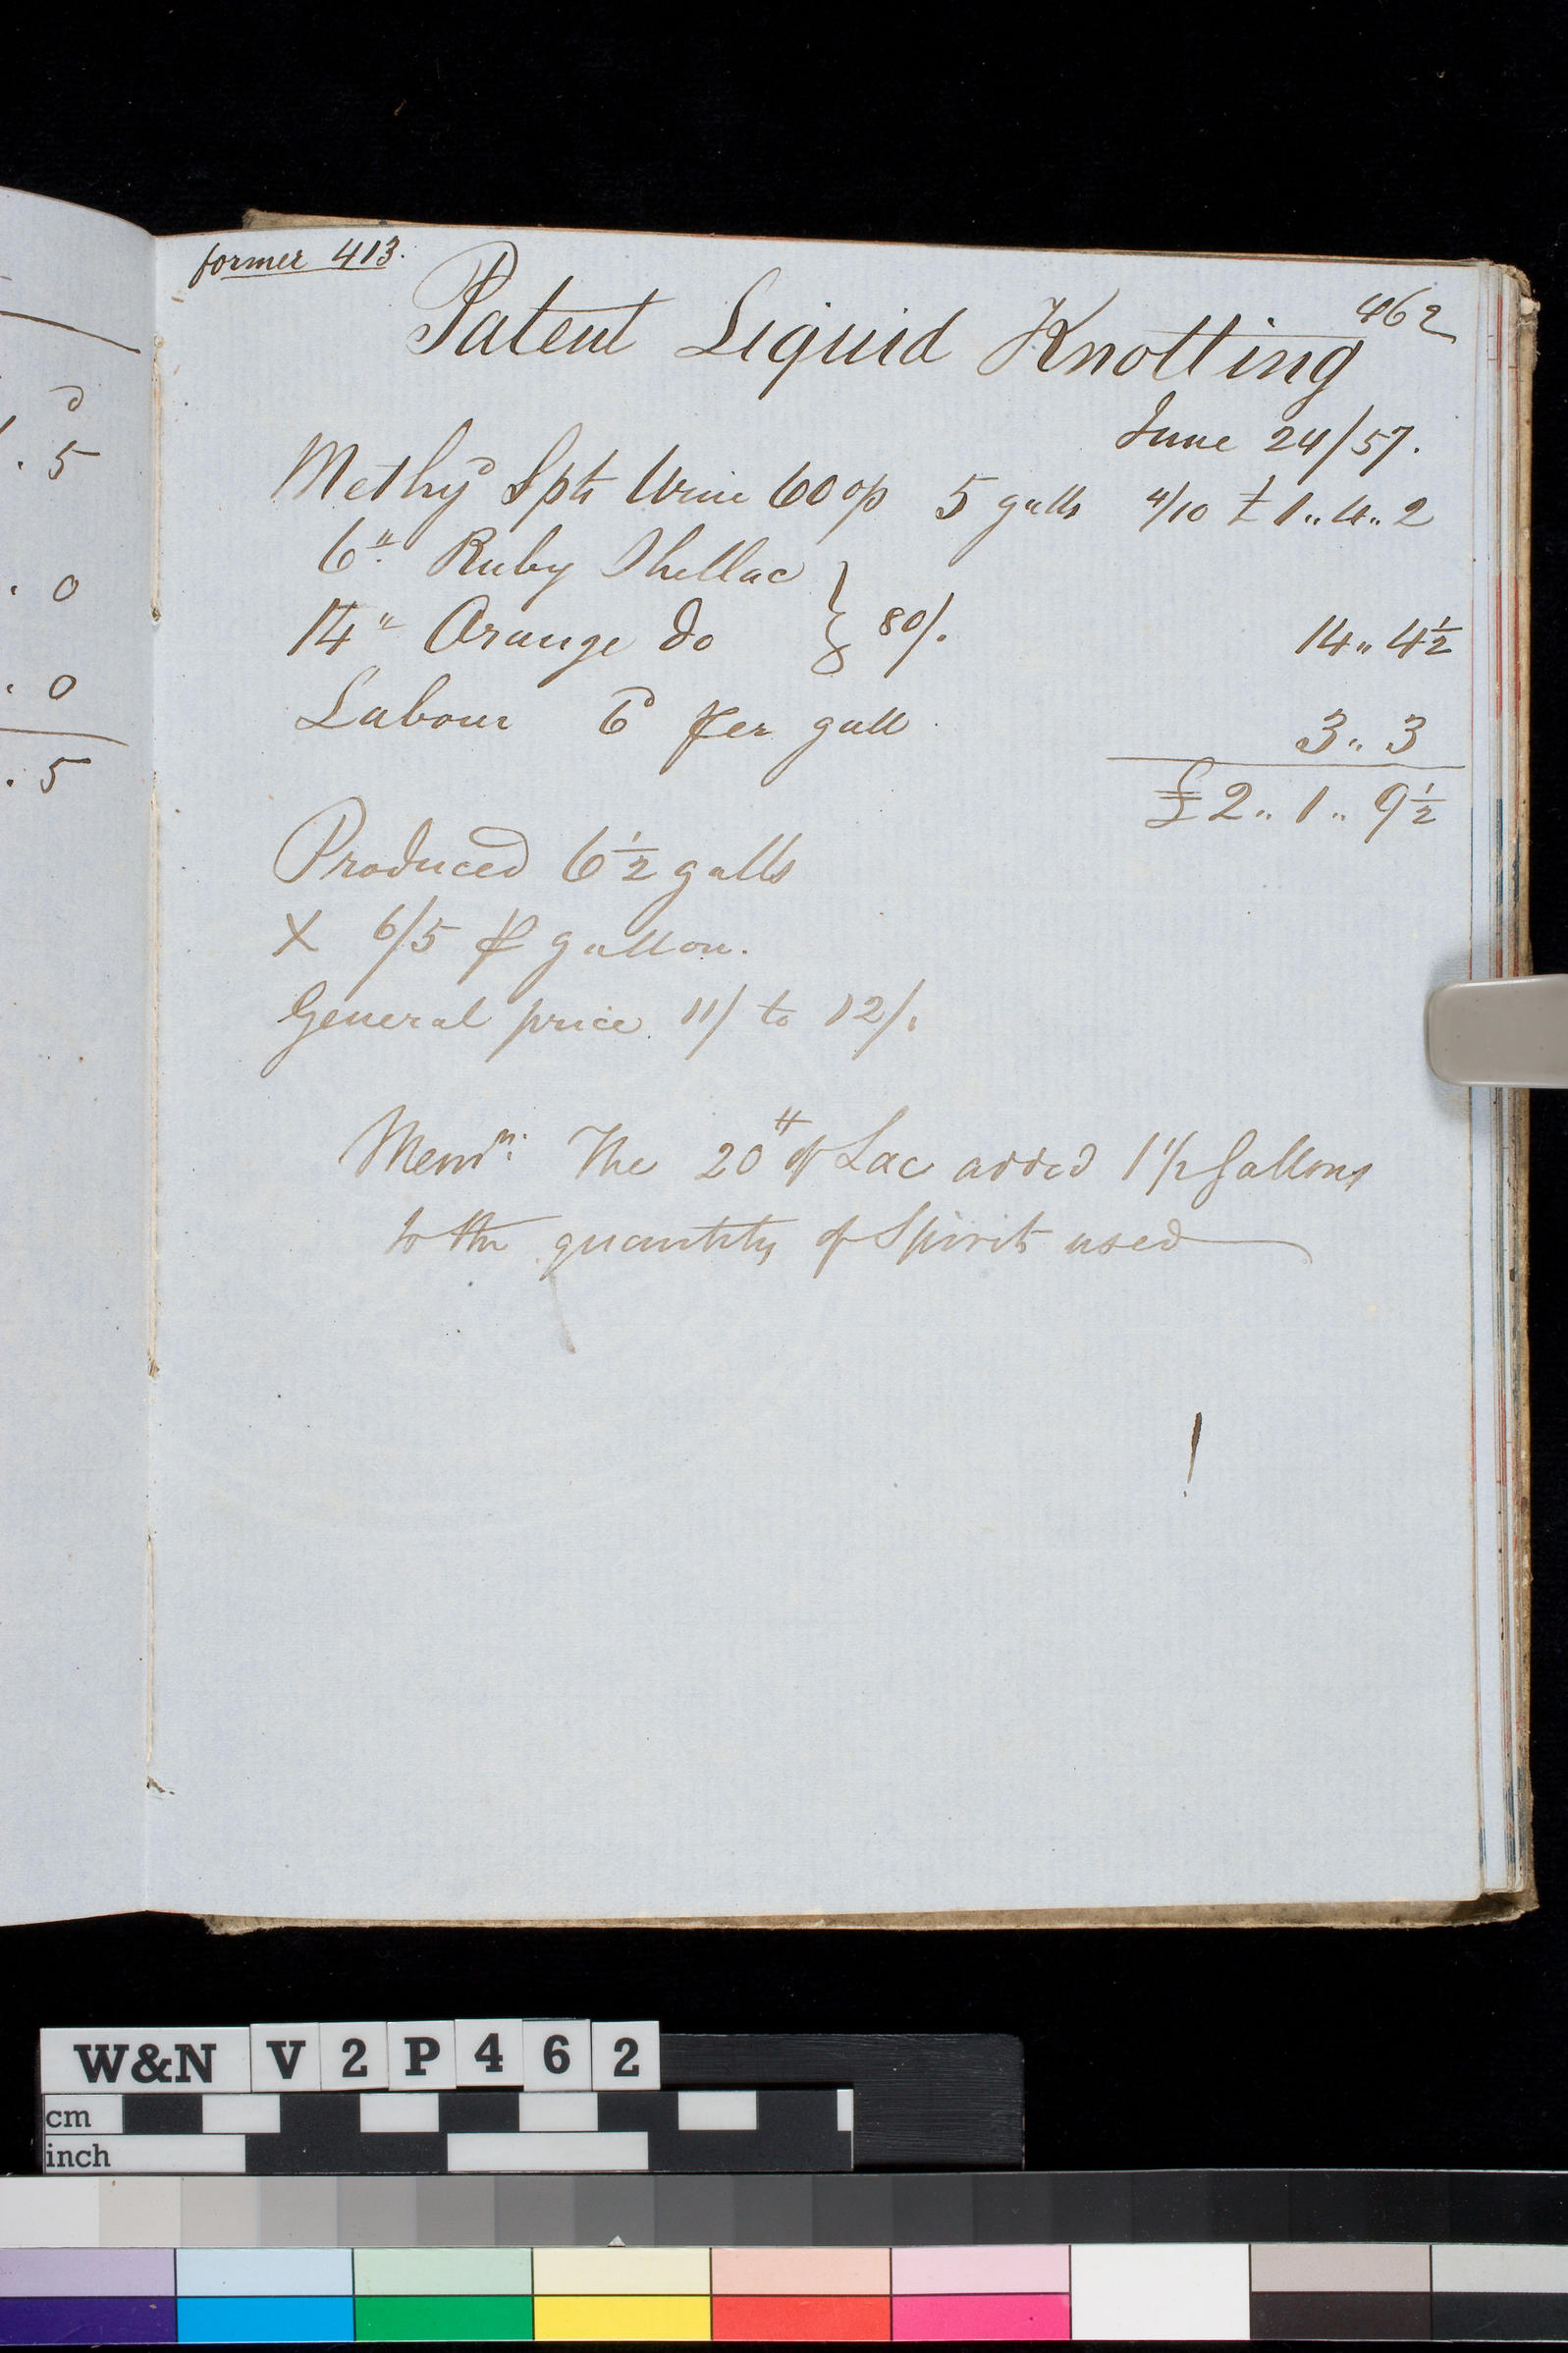 former 413.
462
Patent Liquid Knotting
June 24/57.
Methyd Spts Wine 60 op 5 galls 4/10 £ 1 .. 4 .. 2
6 " Ruby Shellac }
14 " Orange do } 80/. 14 .. 4 1/2
Labour 6d per gall 3 .. 3
£ 2 .. 1 .. 9 1/2
Produced 6 1/2 galls
X 6/5 ⅌ gallon.
General price 11/ to 12/.
Memm: The 20 # of Lac added 1 1/2 Gallons
to the quantity of Spirits used
d
. 5
. 0
. 0
. 5
W&N V 2 P 4 6 2
cm
inch